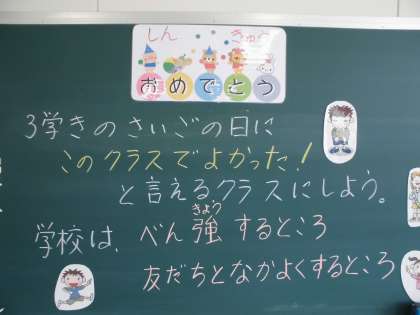 しん きゅう
おめでとう
3学きのさいごの日に
このクラスでよかった!
と言えるクラスにしよう。
きょう
学校は、べん強するところ
友だちとなかよくするところ